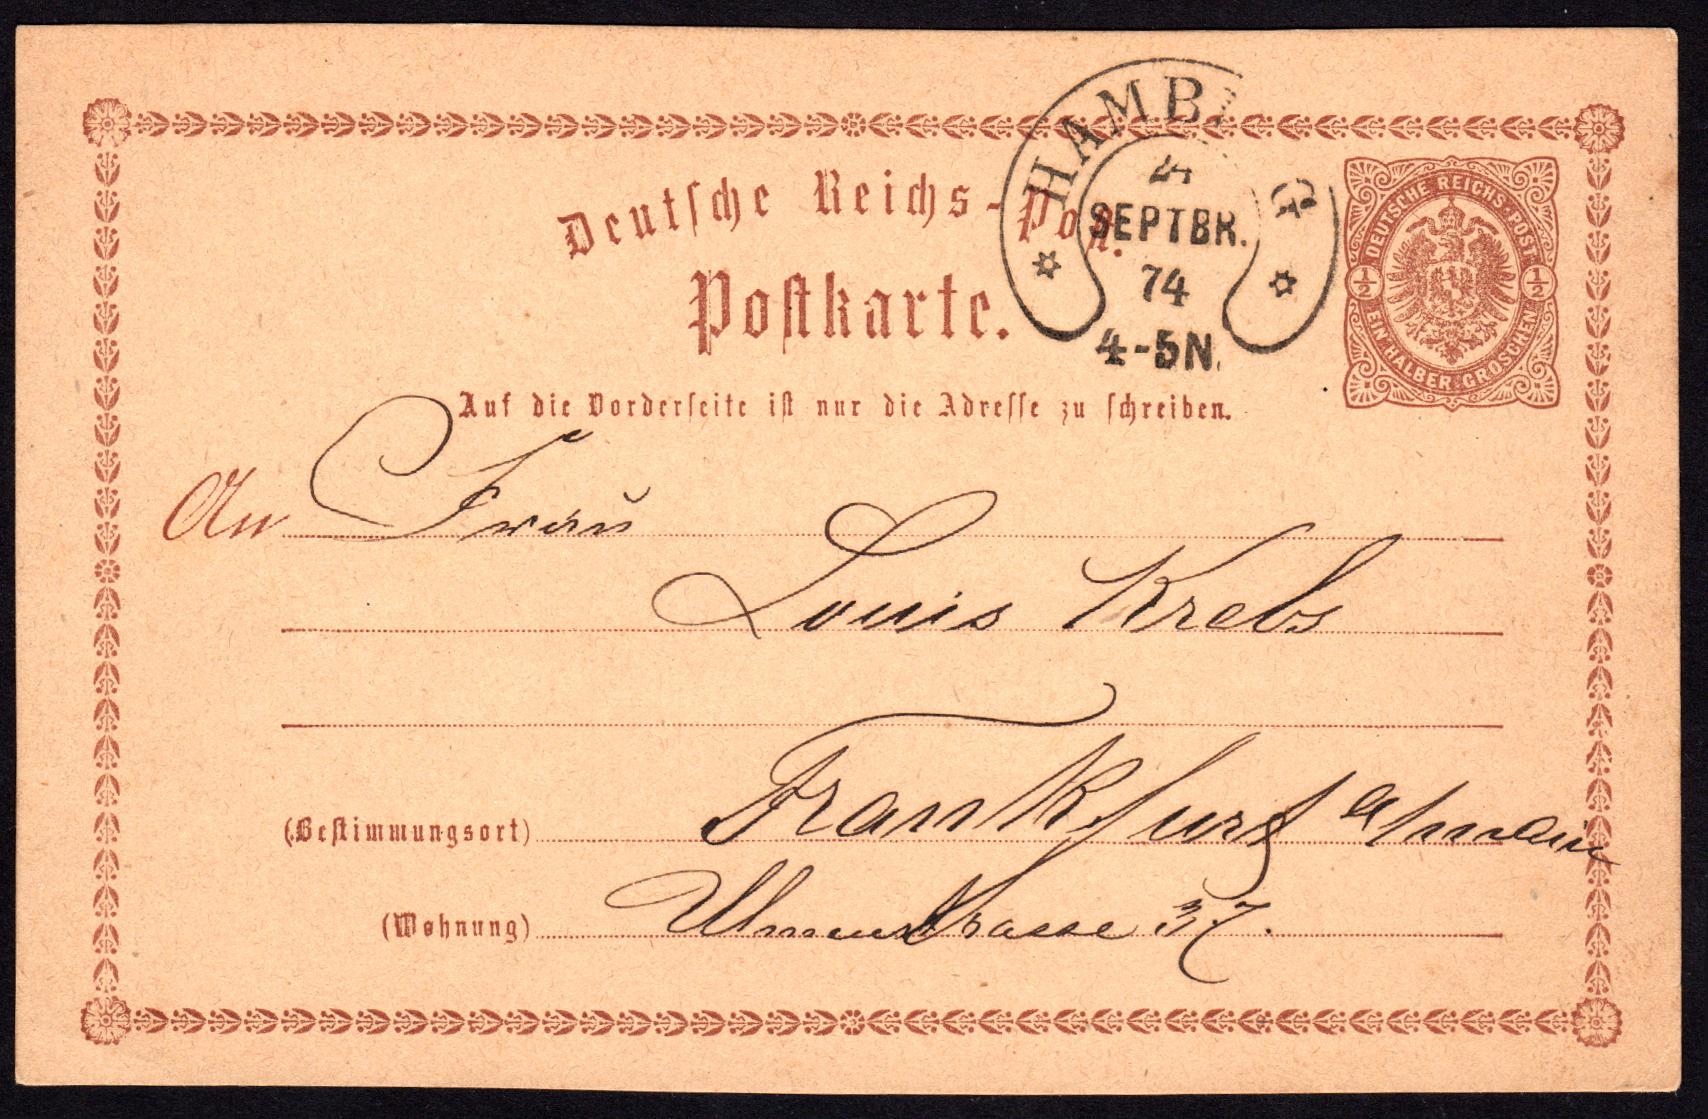 Deutsche Reichs-Post.
Postkarte.
HAMB G
SEPTBR.
74
4-5N.
DEUTSCHE REICHS-POST
½ ½
EIN HALBER GROSCHEN
Auf die Vorderseite ist nur die Adresse zu schreiben.
An Frau
Louis Krebs
(Bestimmungsort) Frankfurt a/main
(Wohnung) Ulmenstrasse 37.